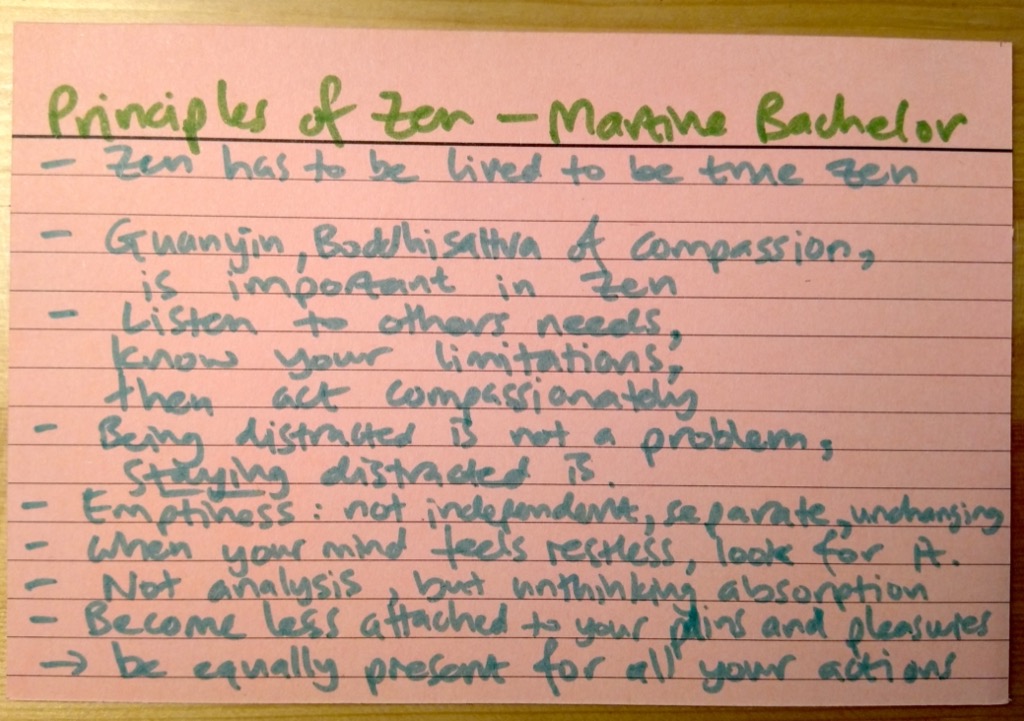 Principles of Zen - Martine Bachelor
- Zen has to be lived to be true Zen
- Guanyin, Boddhisattva of compassion,
is important in Zen
- Listen to others needs,
know your limitations,
then act compassionately
- Being distracted is not a problem,
staying distracted is.
- Emptiness: not independent, separate, unchanging
- When your mind feels restless, look for it.
- Not analysis, but unthinking absorption
- Become less attached to your pains and pleasures
→ be equally present for all your actions